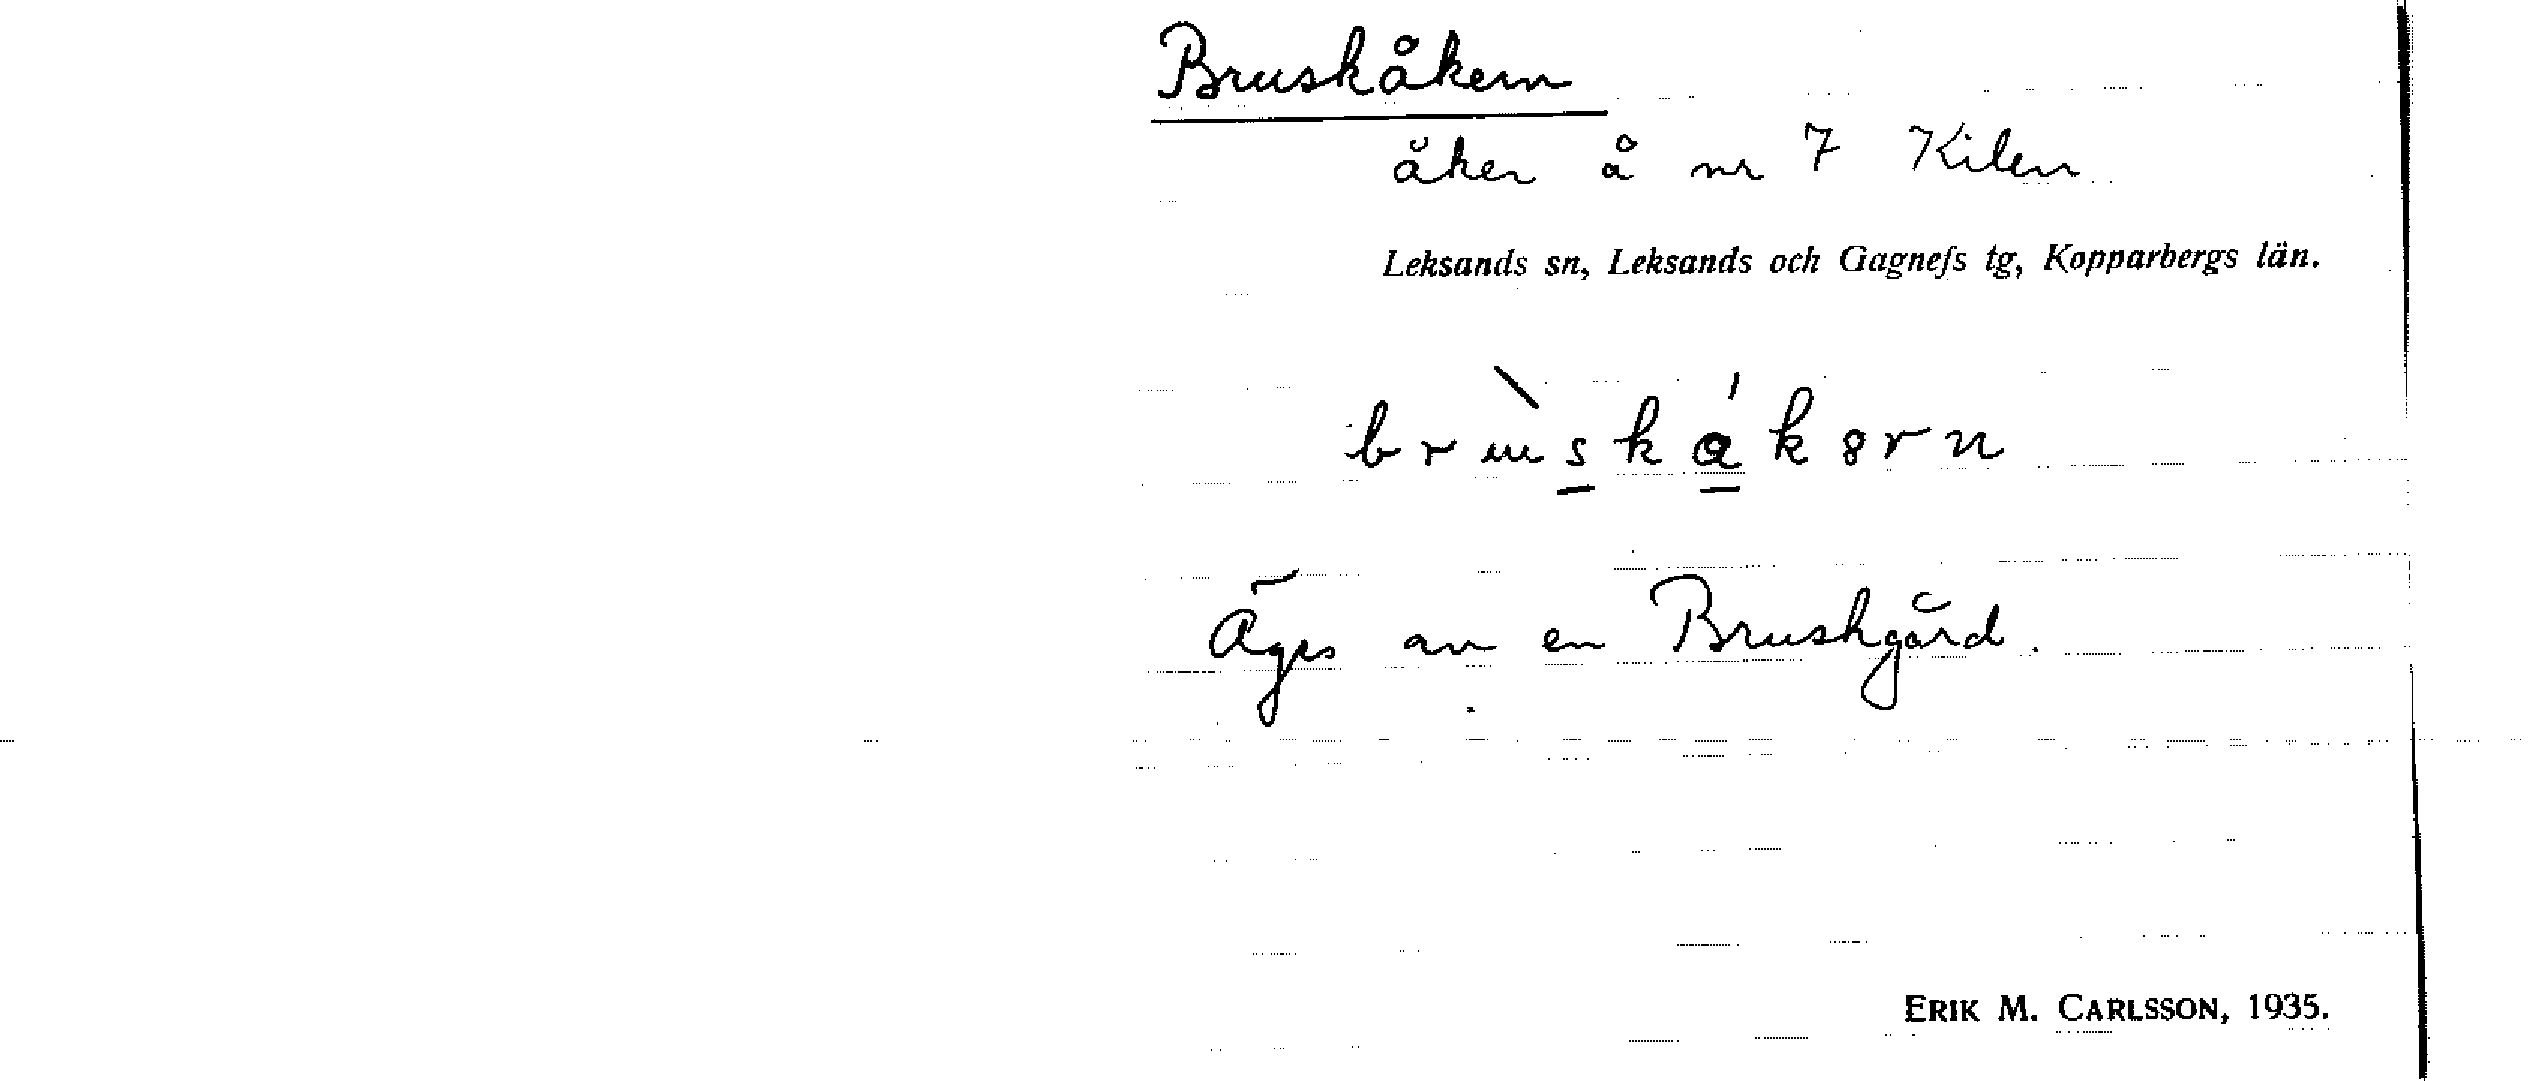 Bruskåkern
åker å nr 7 Kilen
Leksands sn, Leksands och Gagnefs tg, Kopparbergs län.
Äges av en Bruskgård.
ERIK M. CARLSSON, 1935.